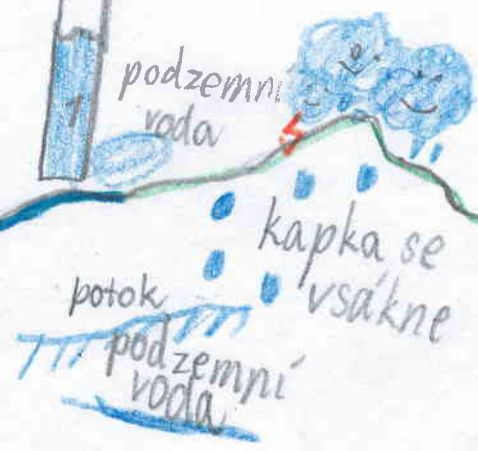 1
podzemní
voda
kapka se
vsákne
potok
podzemní
voda